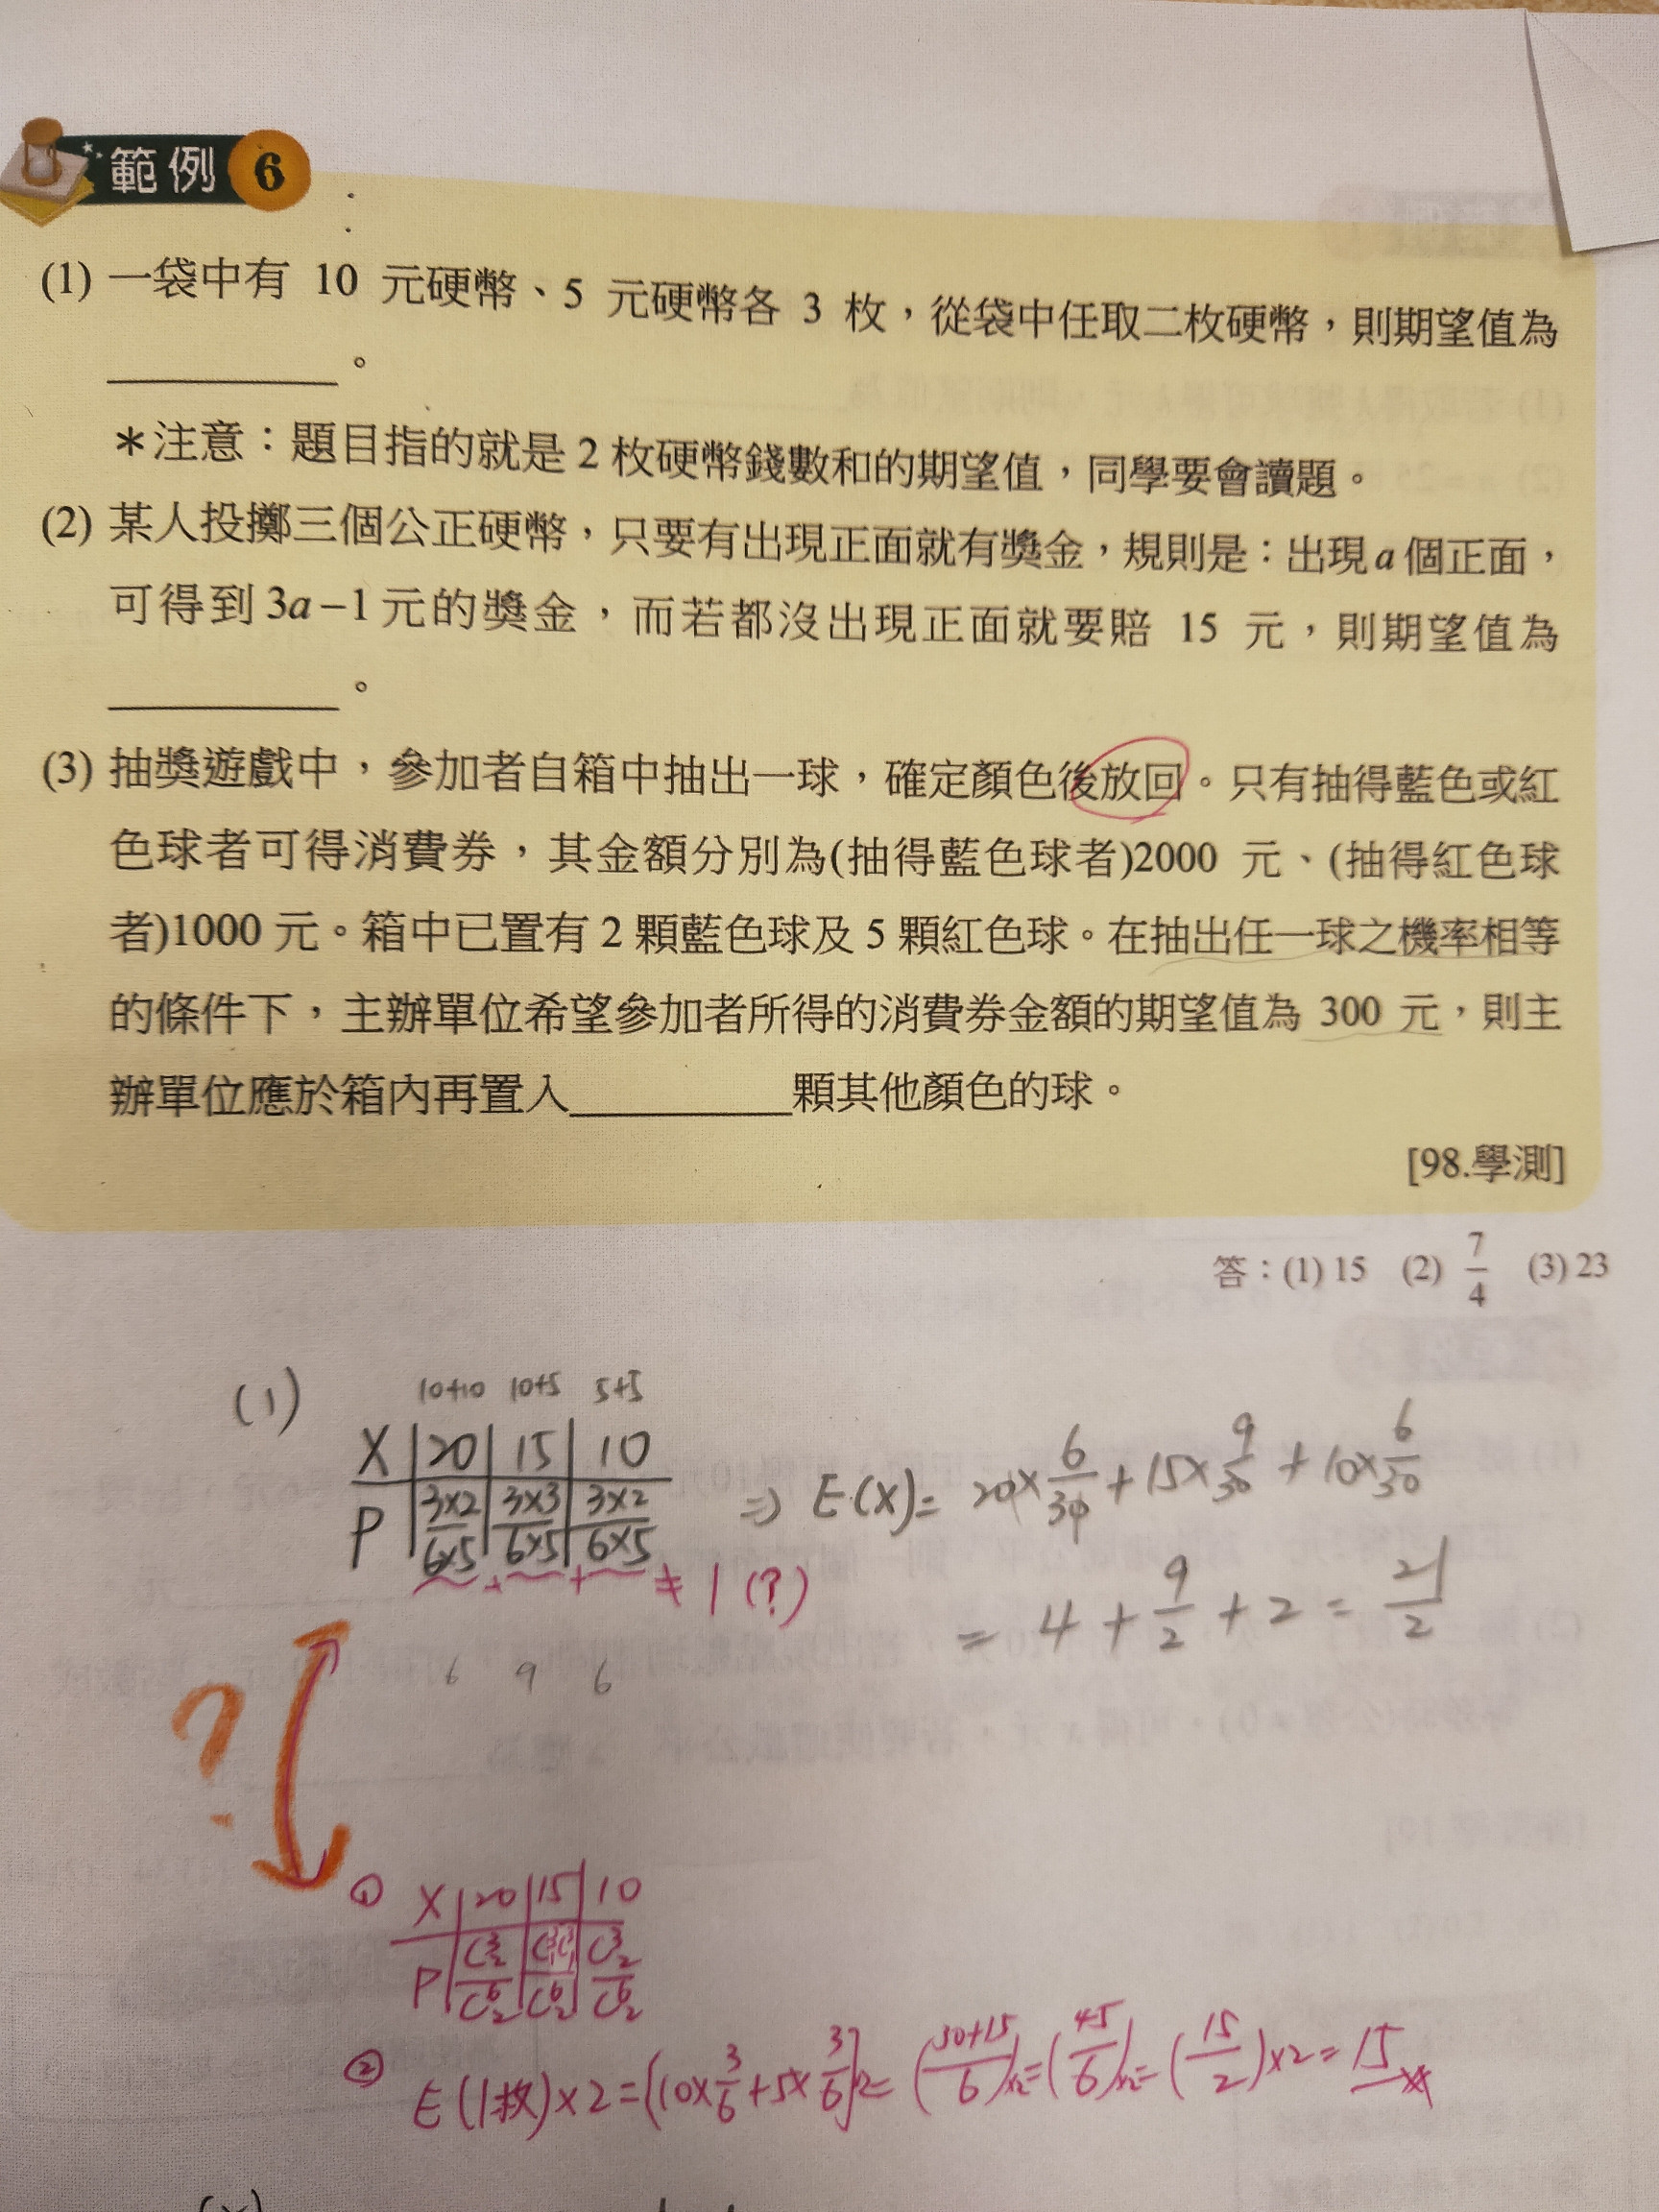 範例 6
(1) 一袋中有 10 元硬幣、5 元硬幣各 3 枚，從袋中任取二枚硬幣，則期望值為
＿＿＿＿＿。
＊注意：題目指的就是 2 枚硬幣錢數和的期望值，同學要會讀題。
(2) 某人投擲三個公正硬幣，只要有出現正面就有獎金，規則是：出現 a 個正面，
可得到 3a－1 元的獎金，而若都沒出現正面就要賠 15 元，則期望值為
＿＿＿＿＿。
(3) 抽獎遊戲中，參加者自箱中抽出一球，確定顏色後放回。只有抽得藍色或紅
色球者可得消費券，其金額分別為(抽得藍色球者)2000 元、(抽得紅色球
者)1000 元。箱中已置有 2 顆藍色球及 5 顆紅色球。在抽出任一球之機率相等
的條件下，主辦單位希望參加者所得的消費券金額的期望值為 300 元，則主
辦單位應於箱內再置入＿＿＿＿＿顆其他顏色的球。
[98.學測]
答：(1) 15 (2) 7/4 (3) 23
(1) 10+10 10+5 5+5
X | 20 | 15 | 10
P | 3×2/6×5 | 3×3/6×5 | 3×2/6×5 ⇒ E(X)= 20×6/30 + 15×9/30 + 10×6/30
+ + ≠ 1 (?)
= 4 + 9/2 + 2 = 21/2
6 9 6
?
① X | 20 | 15 | 10
P | C³₂/C⁶₂ | C³₁C³₁/C⁶₂ | C³₂/C⁶₂
② E(1枚)×2 = (10×3/6+5×3/6)×2 = (30+15/6)×2 = (45/6)×2 = (15/2)×2 = 15